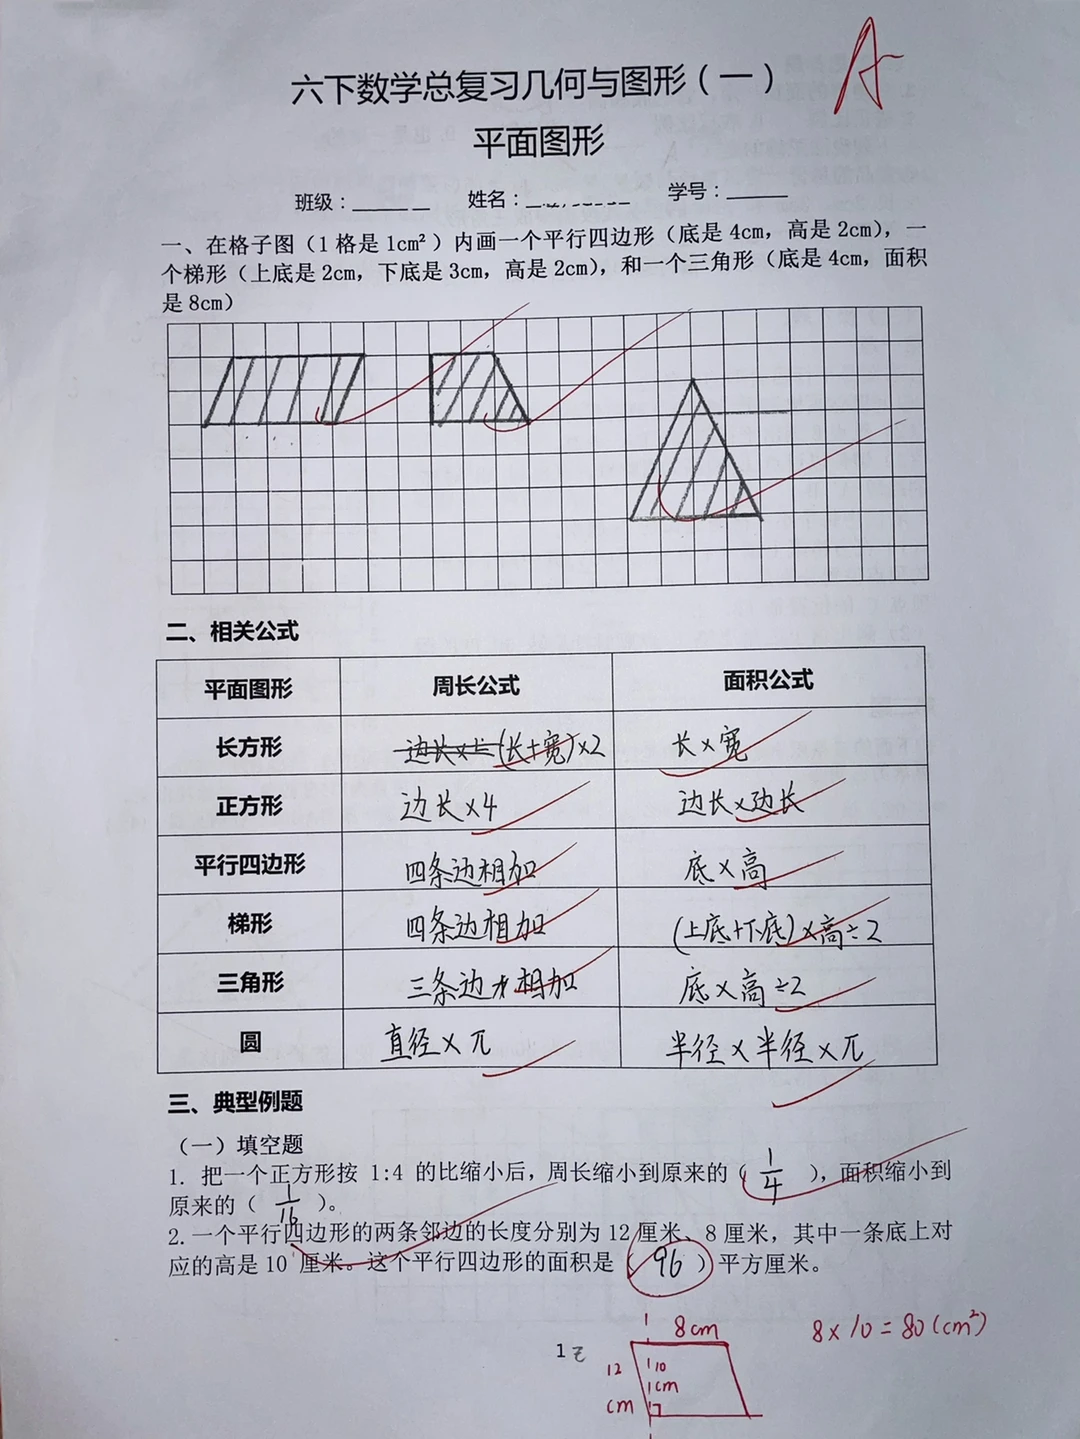 A
六下数学总复习几何与图形（一）
平面图形
班级：______ 姓名： 学号：_____
一、在格子图（1格是1cm²）内画一个平行四边形（底是4cm，高是2cm），一
个梯形（上底是2cm，下底是3cm，高是2cm），和一个三角形（底是4cm，面积
是8cm）
二、相关公式
平面图形 周长公式 面积公式
长方形 边长×长 (长+宽)×2 长×宽
正方形 边长×4 边长×边长
平行四边形 四条边相加 底×高
梯形 四条边相加 (上底+下底)×高÷2
三角形 三条边相加 底×高÷2
圆 直径×兀 半径×半径×兀
三、典型例题
（一）填空题
1. 把一个正方形按 1:4 的比缩小后，周长缩小到原来的（ 1/4 ），面积缩小到
原来的（ 1/16 ）。
2. 一个平行四边形的两条邻边的长度分别为 12 厘米、8 厘米，其中一条底上对
应的高是 10 厘米。这个平行四边形的面积是（ 96 ）平方厘米。
8cm 8×10=80(cm²)
12 10
cm cm
1